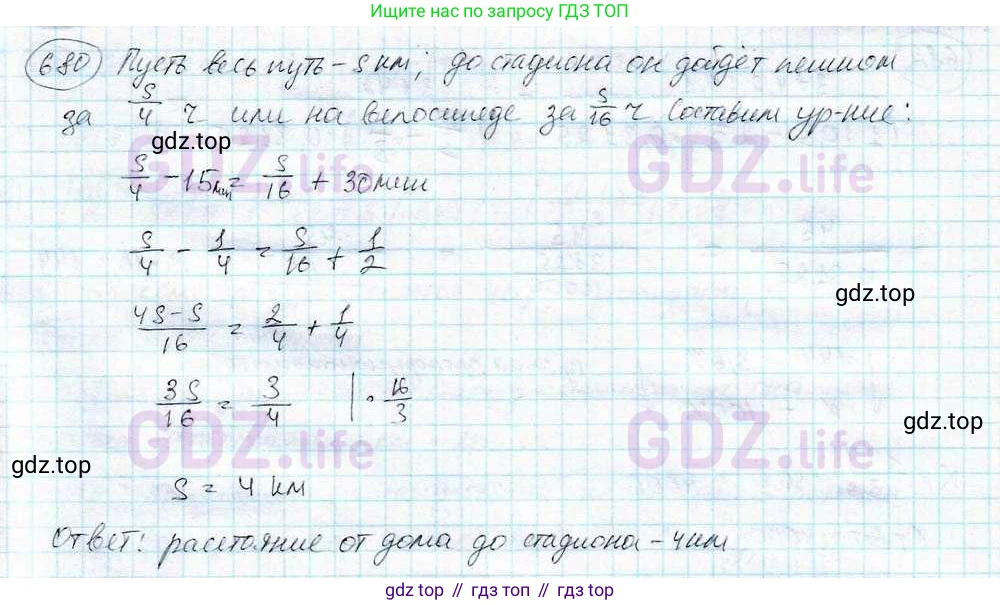 Ищите нас по запросу ГДЗ ТОП
680 Пусть весь путь – S км, до стадиона он дойдёт пешком
за S/4 ч или на велосипеде за S/16 ч Составим ур-ние:
gdz.top
S/4 - 15мин = S/16 + 30мин
GDZ.life GDZ.life
S/4 - 1/4 = S/16 + 1/2
gdz.top
4S-S/16 = 2/4 + 1/4
3S/16 = 3/4 | · 16/3
gdz.top
GDZ.life GDZ.life
gdz.top
S = 4 км
Ответ: расстояние от дома до стадиона – 4км
gdz.top // гдз.топ // гдз.top